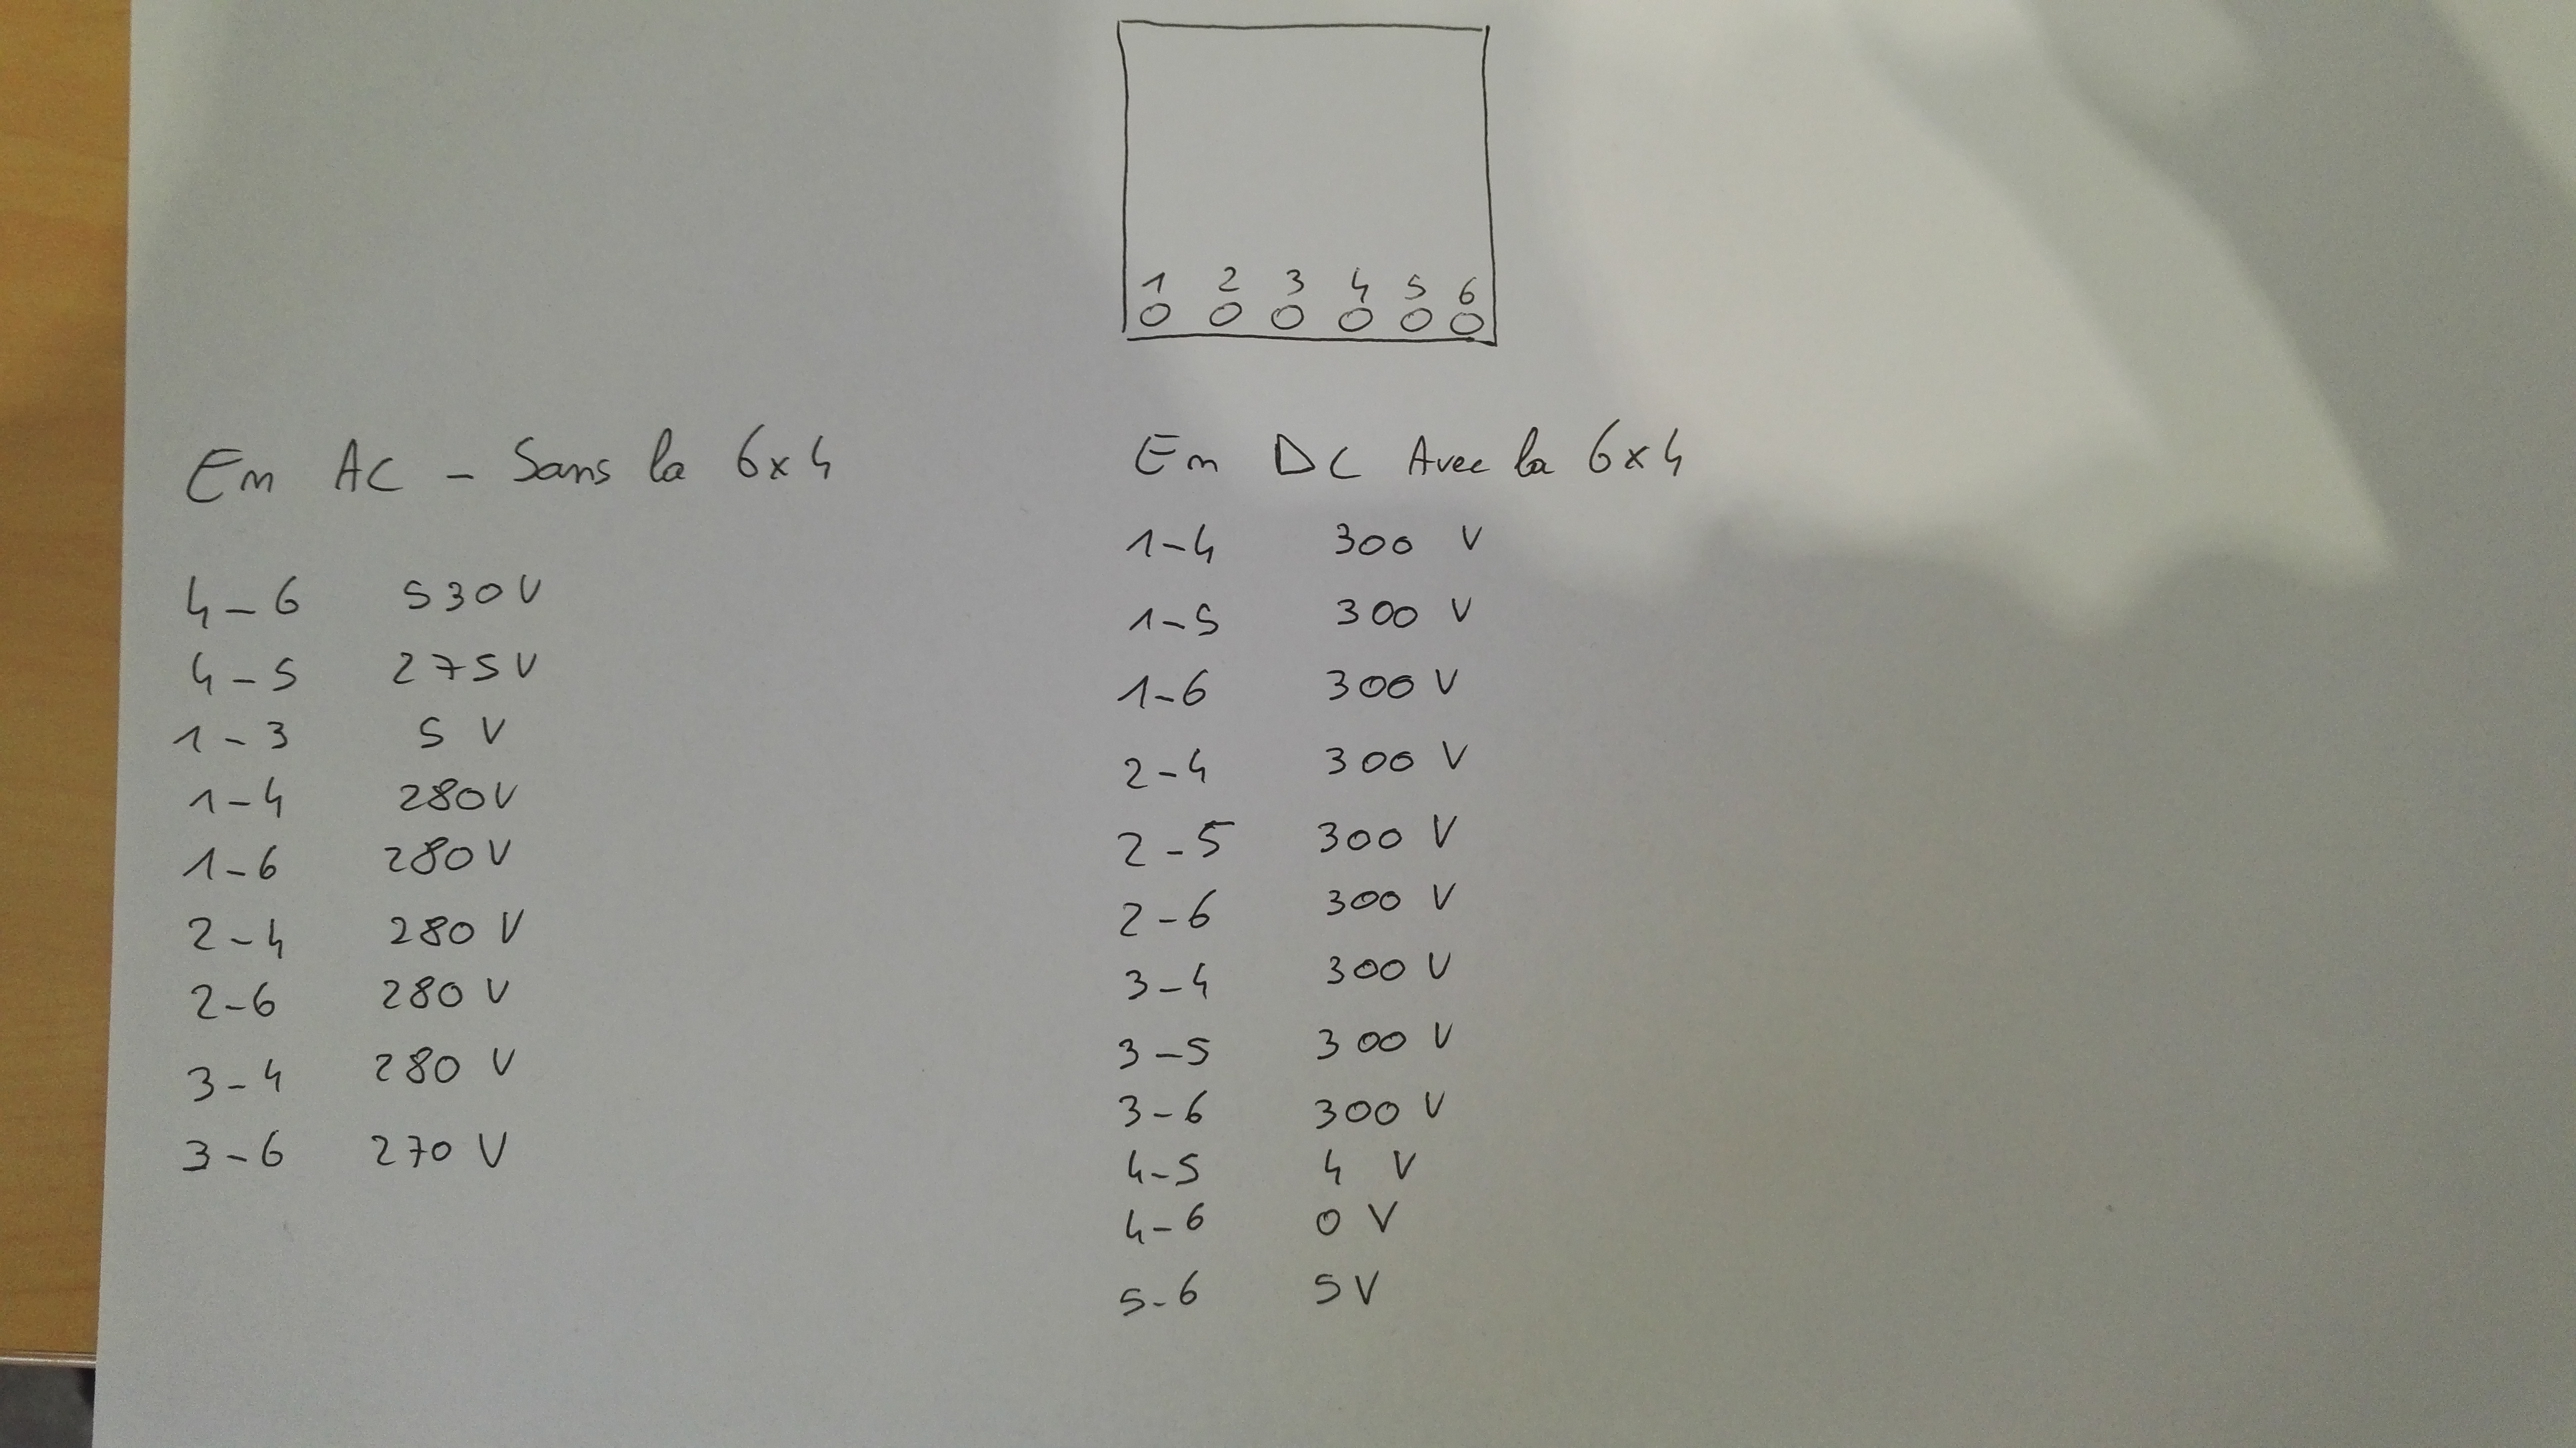 1 2 3 4 5 6
En AC - Sans la 6x4
4-6 530V
4-5 275V
1-3 5 V
1-4 280V
1-6 280V
2-4 280 V
2-6 280 V
3-4 280 V
3-6 270 V
En DC Avec la 6x4
1-4 300 V
1-5 300 V
1-6 300 V
2-4 300 V
2-5 300 V
2-6 300 V
3-4 300 V
3-5 300 V
3-6 300 V
4-5 4 V
4-6 0 V
5-6 5V